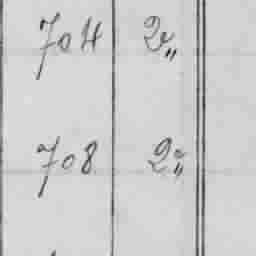 704 2 „
708 2 „